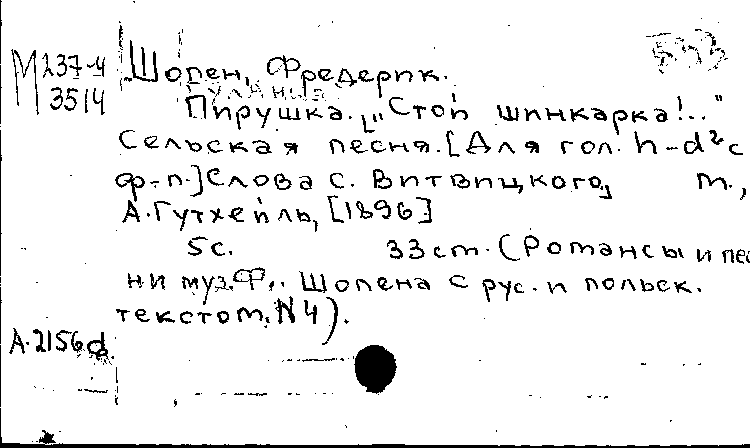 533
М 237-4
3514
Шопен, Фредерик.
Гулянка
Пирушка. ["Стой шинкарка!.."
Сельская песня. [Для гол. h-d²с
ф.-п.] Слова С. Витвицкого] m.,
А. Гутхейль, [1896]
5с. 33 cm. (Романсы и пес
ни муз. Ф. Шопена с рус. и польск.
текстом. N4).
А. 2156d.